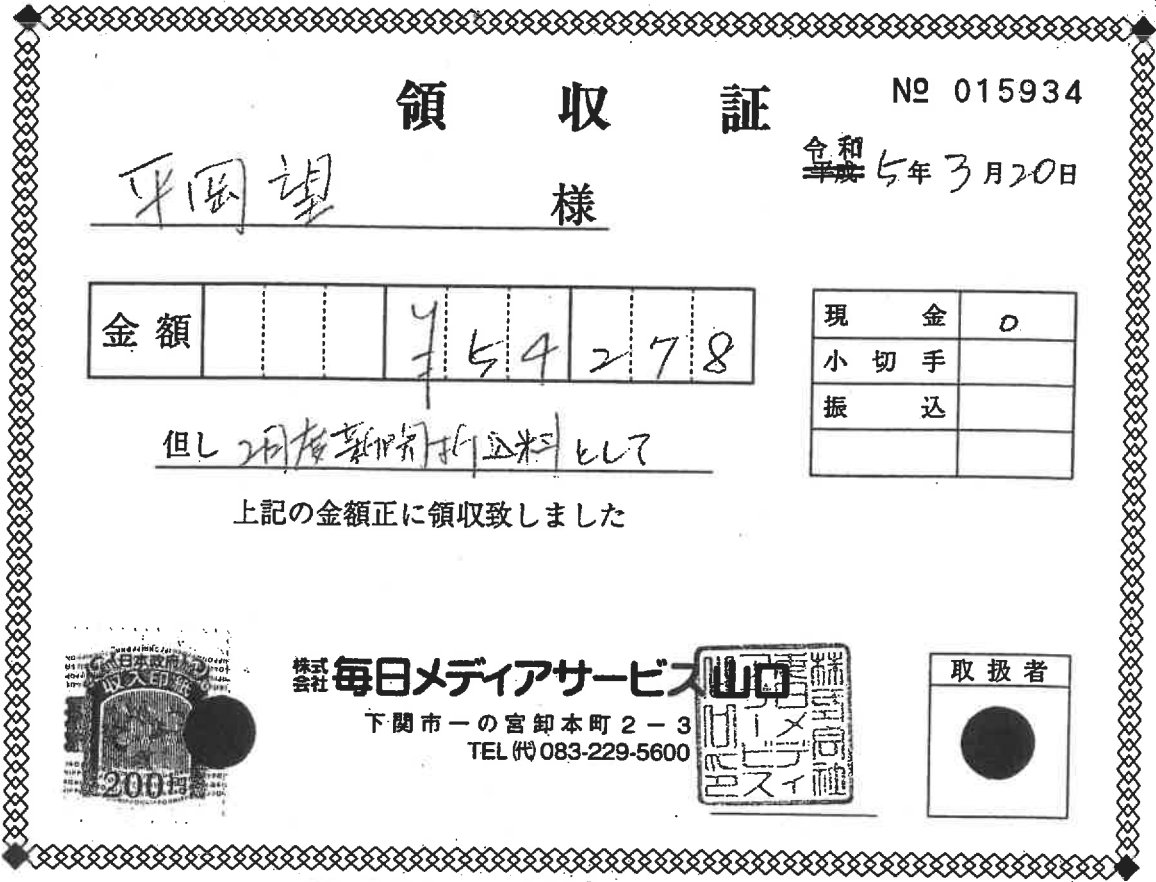 領収証
№ 015934
令和
平成 5年3月20日
平岡望 様
金額 ¥54278
現金 0
小切手
振込
但し 2月度新聞折込料として
上記の金額正に領収致しました
日本政府
収入印紙
200円
株式会社 毎日メディアサービス山口
下関市一の宮卸本町2-3
TEL(代)083-229-5600
取扱者